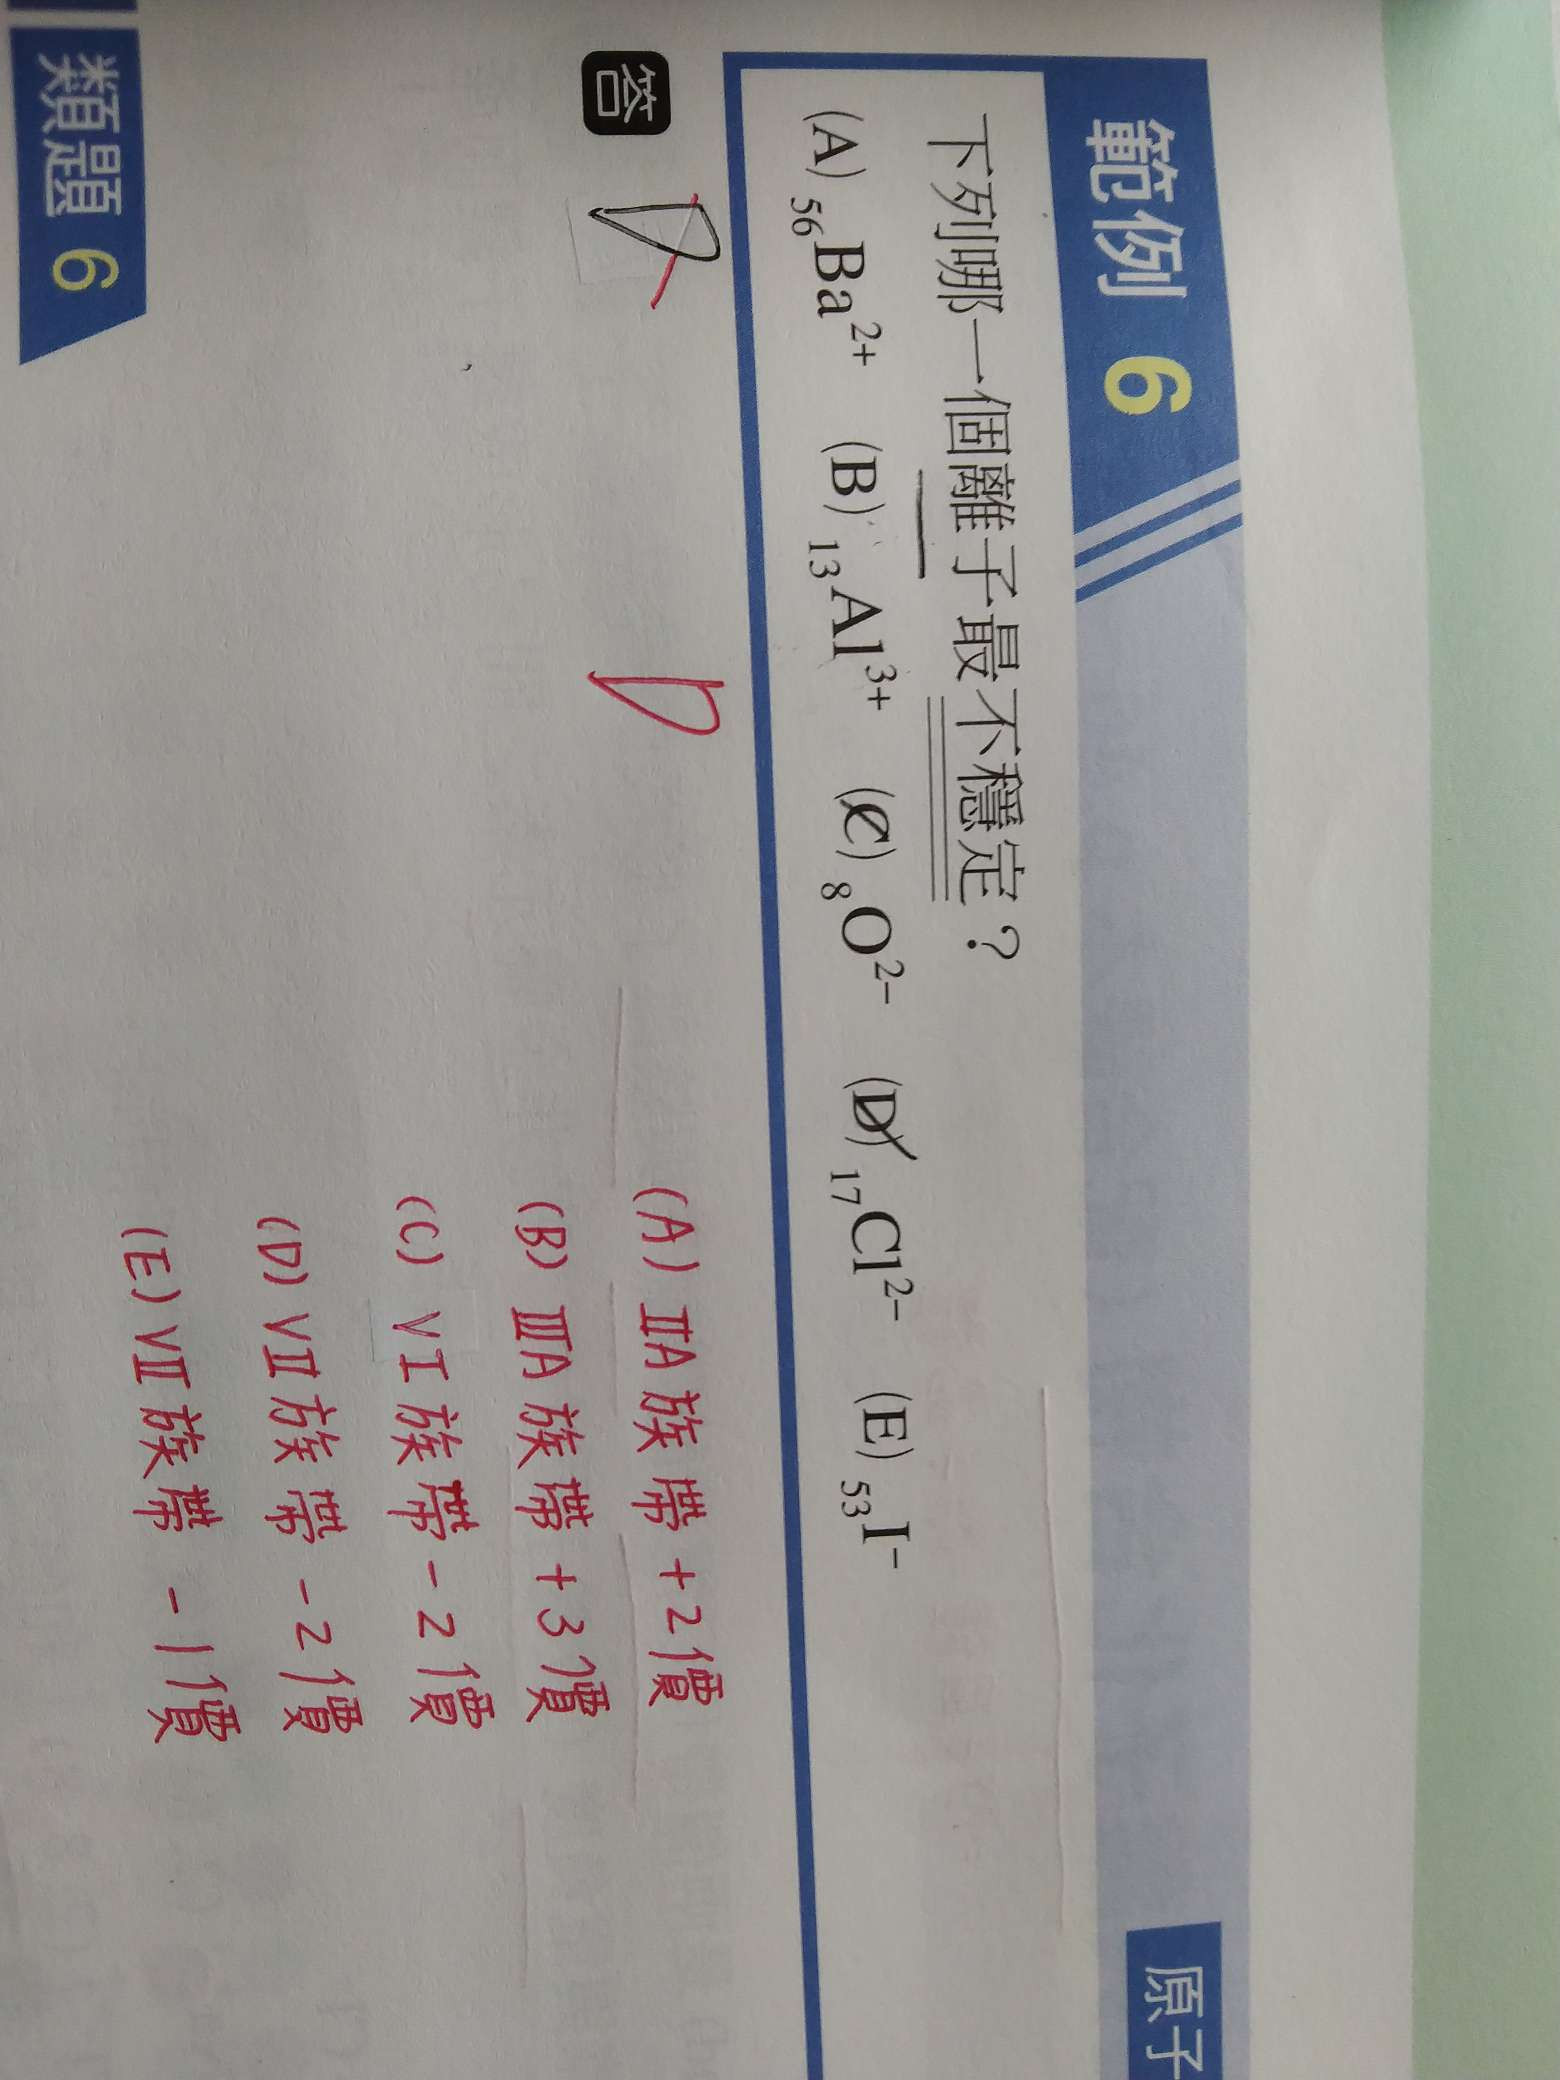 範例 6
原子
下列哪一個離子最不穩定？
(A) ₅₆Ba²⁺ (B) ₁₃Al³⁺ (C) ₈O²⁻ (D) ₁₇Cl²⁻ (E) ₅₃I⁻
答 D D
(A) ⅡA族 帶 +2價
(B) ⅢA族 帶 +3價
(C) Ⅵ族 帶 -2價
(D) Ⅶ族 帶 -2價
(E) Ⅶ族 帶 -1價
類題 6